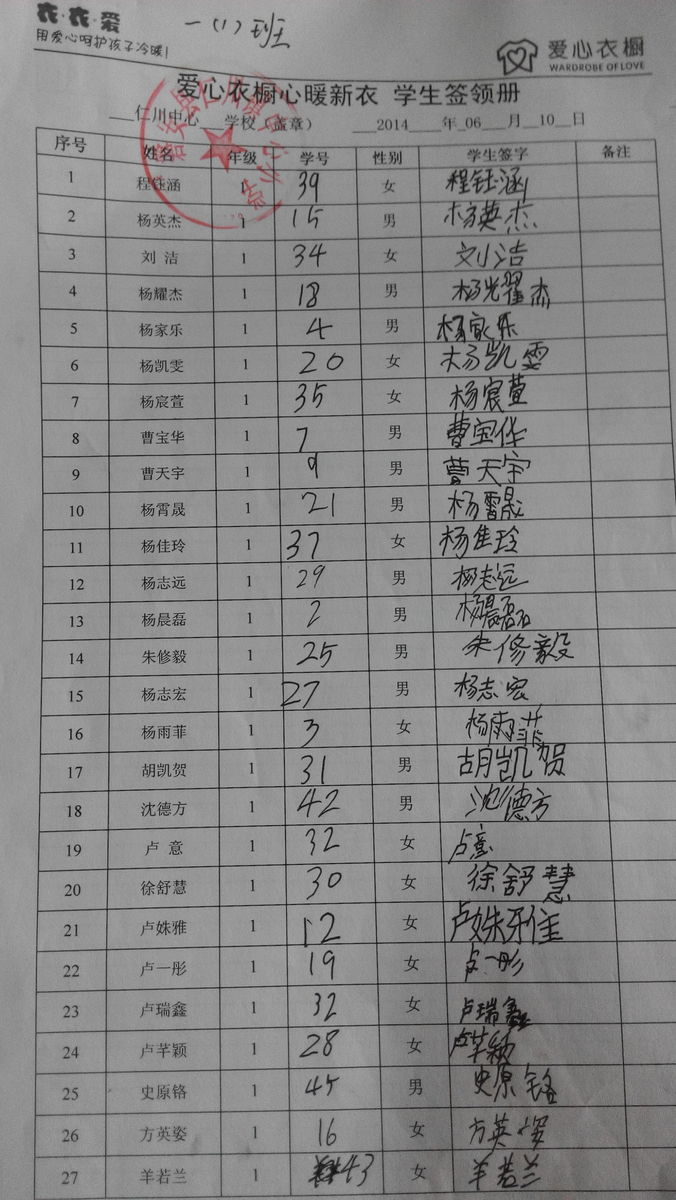 衣·衣·爱
用爱心呵护孩子冷暖！
一（1）班
爱心衣橱
WARDROBE OF LOVE
爱心衣橱心暖新衣 学生签领册
仁川中心 学校（盖章） 2014 年 06 月 10 日
序号 姓名 年级 学号 性别 学生签字 备注
1 程钰涵 1 39 女 程钰涵
2 杨英杰 1 15 男 杨英杰
3 刘 洁 1 34 女 刘洁
4 杨耀杰 1 18 男 杨耀杰
5 杨家乐 1 4 男 杨家乐
6 杨凯雯 1 20 女 杨凯雯
7 杨宸萱 1 35 女 杨宸萱
8 曹宝华 1 7 男 曹宝华
9 曹天宇 1 9 男 曹天宇
10 杨霄晟 1 21 男 杨霄晟
11 杨佳玲 1 37 女 杨佳玲
12 杨志远 1 29 男 杨志远
13 杨晨磊 1 2 男 杨晨磊
14 朱修毅 1 25 男 朱修毅
15 杨志宏 1 27 男 杨志宏
16 杨雨菲 1 3 女 杨雨菲
17 胡凯贺 1 31 男 胡凯贺
18 沈德方 1 42 男 沈德方
19 卢 意 1 32 女 卢意
20 徐舒慧 1 30 女 徐舒慧
21 卢姝雅 1 12 女 卢姝雅
22 卢一彤 1 19 女 卢一彤
23 卢瑞鑫 1 32 女 卢瑞鑫
24 卢芊颖 1 28 女 卢芊颖
25 史原铬 1 45 男 史原铬
26 方英姿 1 16 女 方英姿
27 羊若兰 1 43 女 羊若兰